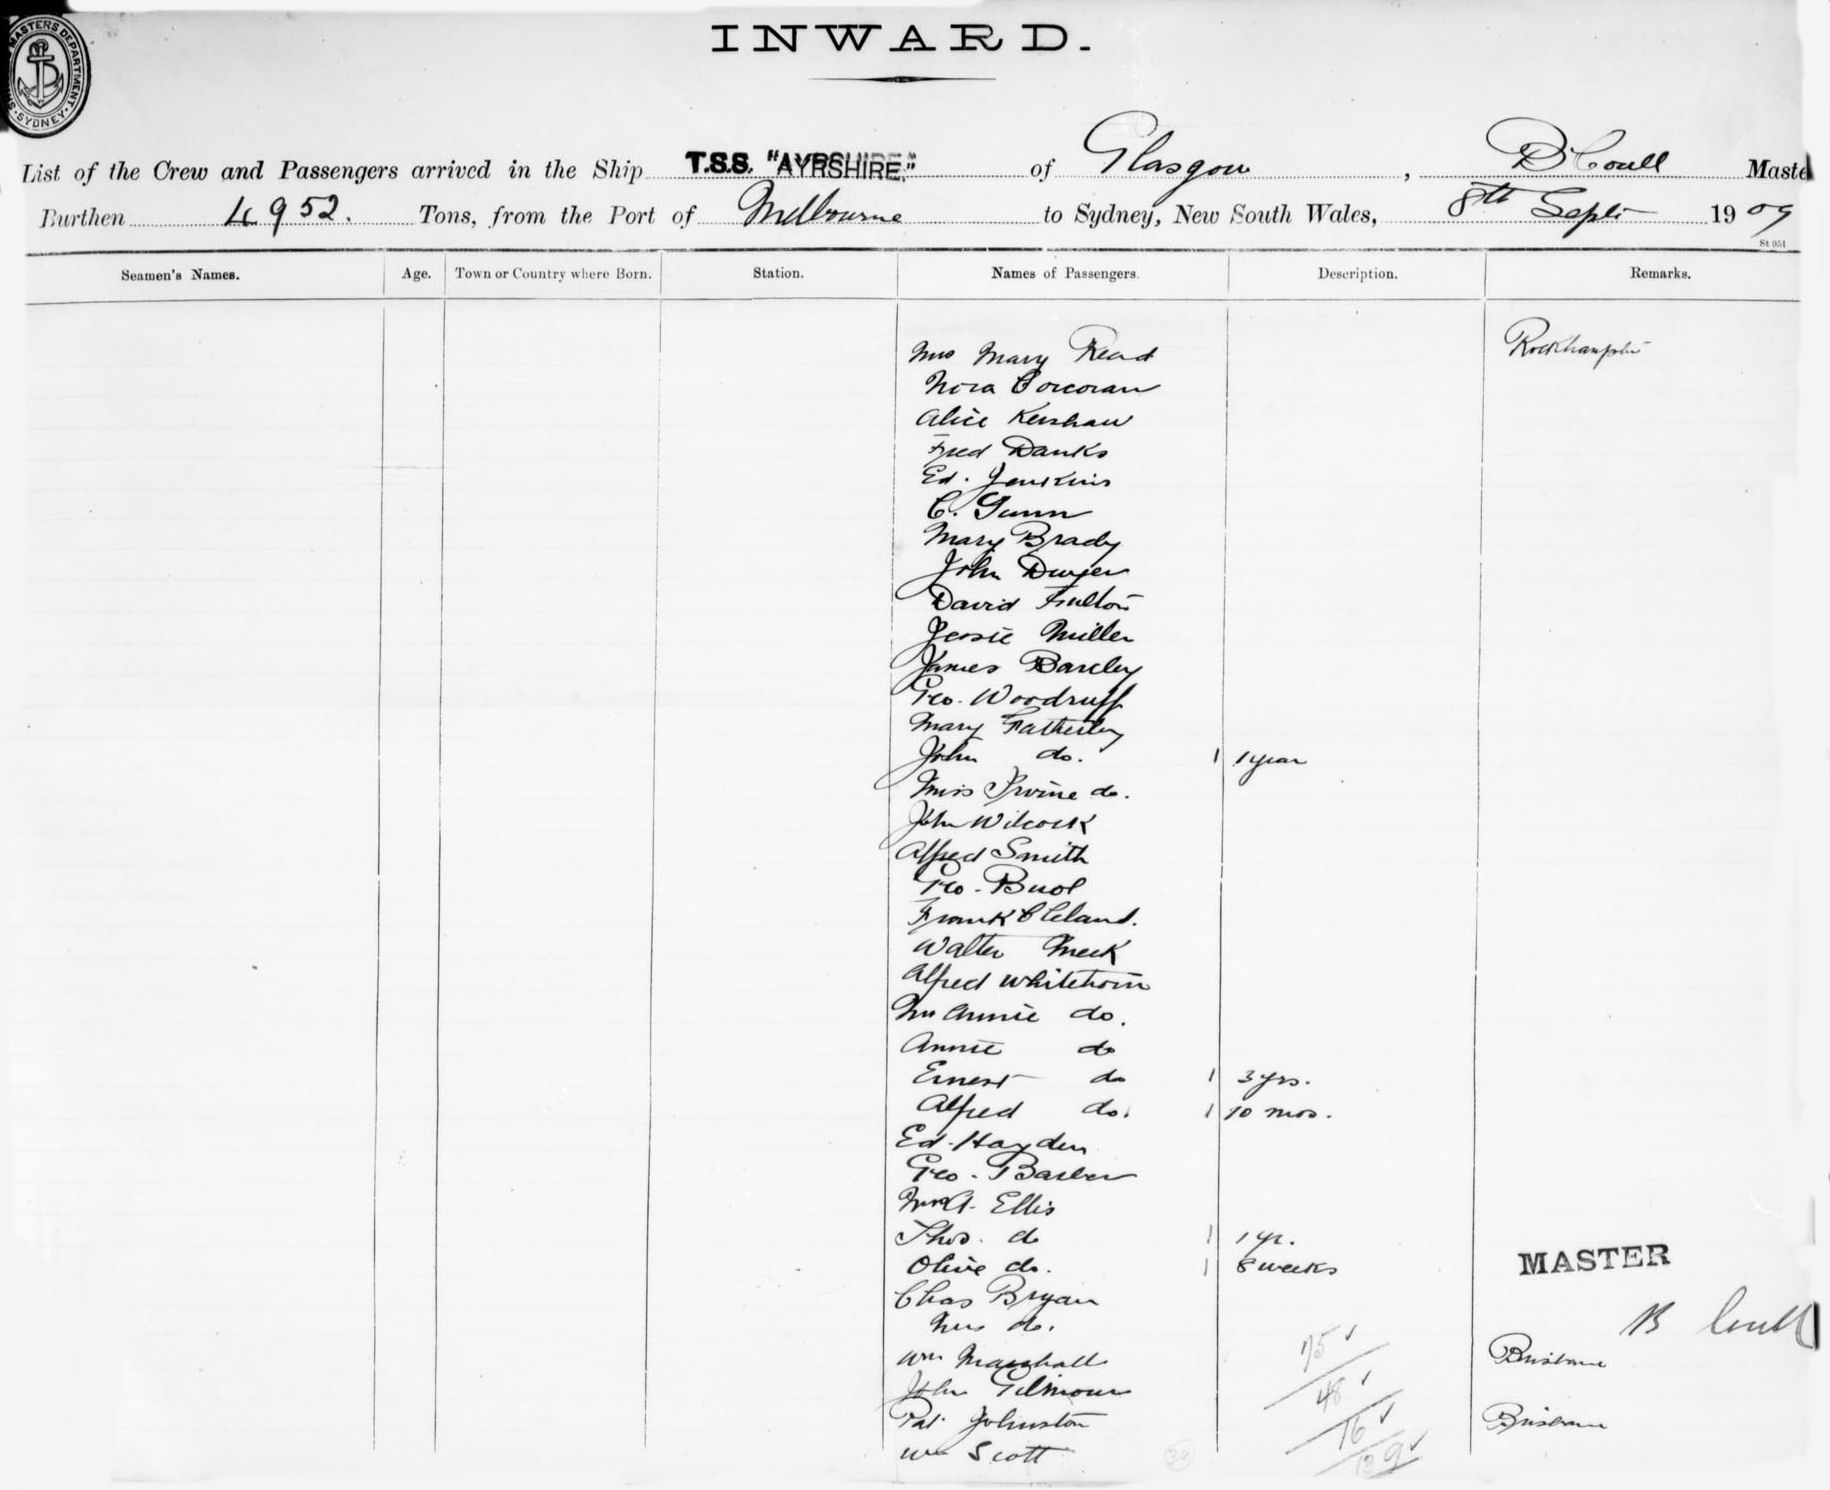 INWARD.
SHIPPING MASTERS DEPARTMENT. SYDNEY.
List of the Crew and Passengers arrived in the Ship T.S.S. "AYRSHIRE." of Glasgow, Coull Maste
Burthen 4952. Tons, from the Port of Melbourne to Sydney, New South Wales, 8th Sept 1909
St 951
Seamen's Names. Age. Town or Country where Born. Station. Names of Passengers. Description. Remarks.
Mrs Mary Read Rockhampton
Nora Corcoran
Alice Kershaw
Fred Danks
Ed. Jenkins
C. Gunn
Mary Brady
John Dwyer
David Fulton
Jessie Miller
James Barcley
Geo. Woodruff
Mary Fatherley
John do. 1 1 year
Miss Irvine do.
John Wilcock
Alfred Smith
Geo. Buol
Frank Cleland.
Walter Meek
Alfred Whitehorn
Mrs Annie do.
Annie do
Ernest do 1 3 yrs.
Alfred do. 1 10 mos.
Ed. Hayden
Geo. Barber
Ellis
Thos. do 1 1 yr.
Olive do. 1 8 weeks
MASTER
Chas Bryan
Mrs do.
Coull
75
Wm Marshall Brisbane
John Gilmour
48
Pat Johnston Brisbane
16
Wm Scott
139